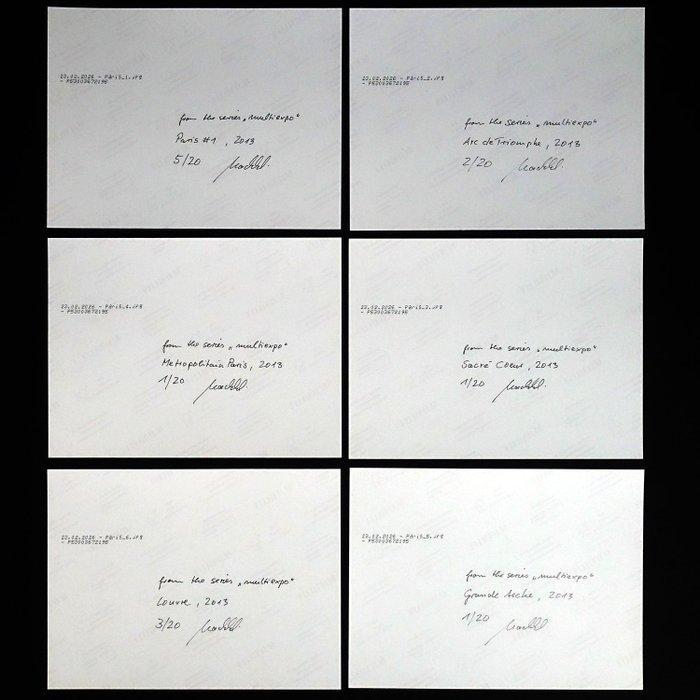 23.02.2026 - Paris_1.jpg
- P53003672195
from the series „multiexpo“
Paris #1 , 2013
5/20
23.02.2026 - Paris_2.jpg
- P53003672195
from the series „multiexpo“
Arc de Triomphe , 2013
2/20
23.02.2026 - Paris_4.jpg
- P53003672195
from the series „multiexpo“
Metropolitain Paris, 2013
1/20
23.02.2026 - Paris_3.jpg
- P53003672195
from the series „multiexpo“
Sacré Coeur, 2013
1/20
23.02.2026 - Paris_6.jpg
- P53003672195
from the series „multiexpo“
Louvre , 2013
3/20
23.02.2026 - Paris_5.jpg
- P53003672195
from the series „multiexpo“
Grande Arche, 2013
1/20